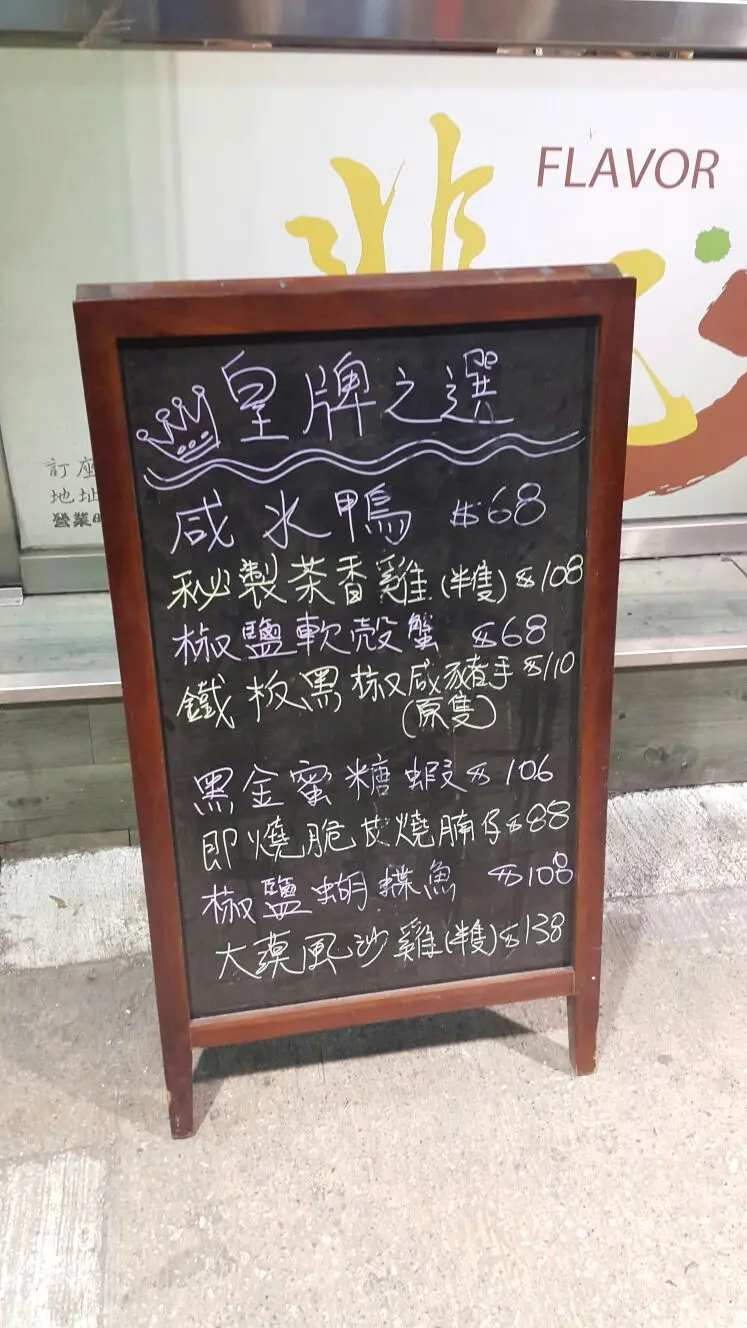 FLAVOR
訂座
地址
營業時
皇牌之選
咸水鴨 $68
秘製茶香雞(半隻) $108
椒鹽軟殼蟹 $68
鐵板黑椒咸豬手 $110
(原隻)
黑金蜜糖蝦 $106
即燒脆炭燒腩仔 $88
椒鹽蝴蝶魚 $108
大漠風沙雞(半隻) $138